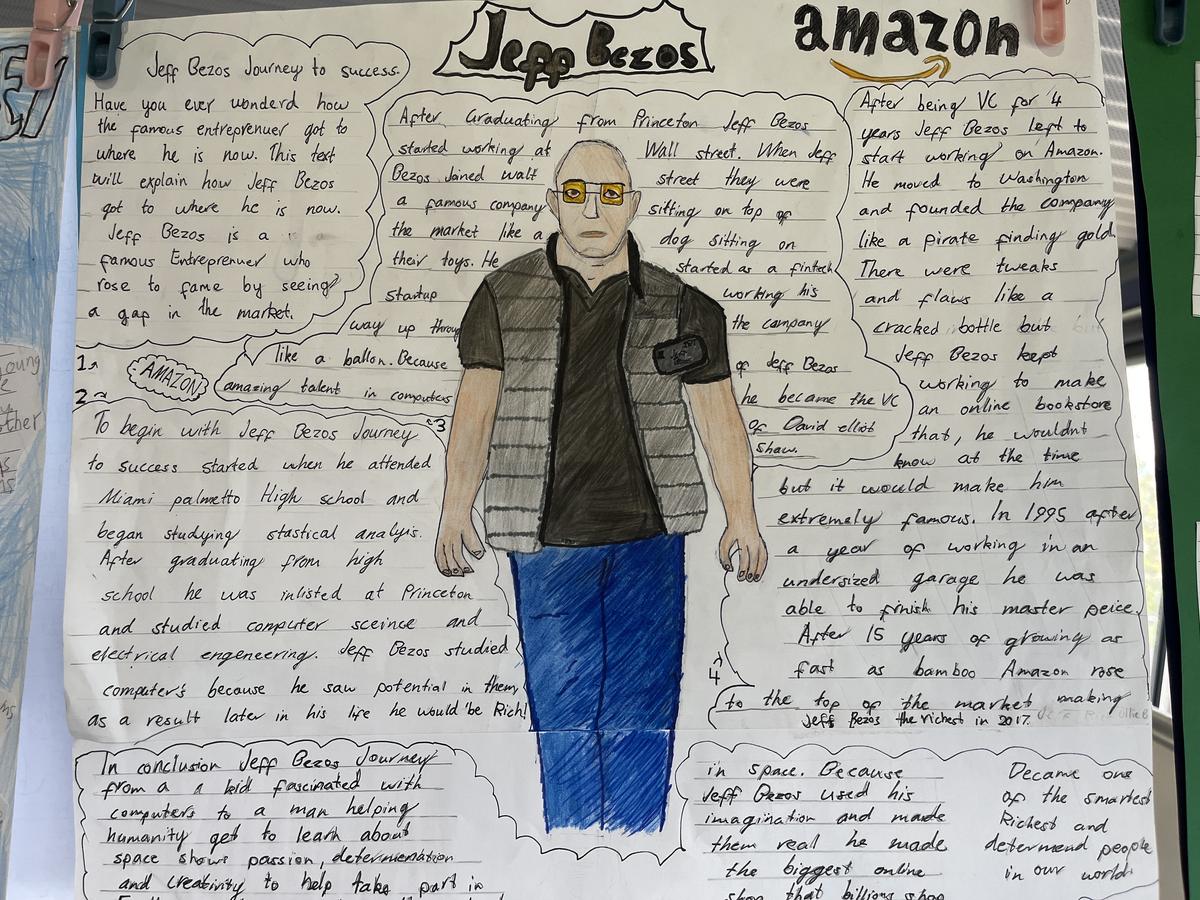 Jeff Bezos
amazon
Jeff Bezos Journey to success.
Have you ever wonderd how
the famous entreprenuer got to
where he is now. This text
will explain how Jeff Bezos
got to where he is now.
Jeff Bezos is a
famous Entreprenuer who
rose to fame by seeing
a gap in the market.
1
AMAZON
2
To begin with Jeff Bezos Journey
to success started when he attended
Miami palmetto High school and
began studying stastical analyis.
After graduating from high
school he was inlisted at Princeton
and studied computer sceince and
electrical engeneering. Jeff Bezos studied
computer's because he saw potential in them,
as a result later in his life he would be Rich!
3
After Graduating from Princeton Jeff Bezos
started working at Wall street. When Jeff
Bezos Joined walt street they were
a famous company sitting on top of
the market like a dog sitting on
their toys. He started as a fintech
startup working his
way up throug the company
like a ballon. Because of Jeff Bezos
amazing talent in computers he became the VC
of David elliot
Shaw.
After being VC for 4
years Jeff Bezos left to
start working on Amazon.
He moved to Washington
and founded the company
like a pirate finding gold.
There were tweaks
and flaws like a
cracked bottle but
Jeff Bezos kept
working to make
an online bookstore
that, he wouldnt
know at the time
but it would make him
extremely famous. In 1995 after
a year of working in an
undersized garage he was
able to finish his master peice.
After 15 years of growing as
fast as bamboo Amazon rose
4
to the top of the market making
Jeff Bezos the richest in 2017.
In conclusion Jeff Bezos Journey
from a a kid fascinated with
computers to a man helping
humanity get to learn about
space shows passion, determenation
and creativity to help take part in
in space. Because
Jeff Bezos used his
imagination and made
them real he made
the biggest online
shop that billions shop
Became one
of the smartest
Richest and
determend people
in our world